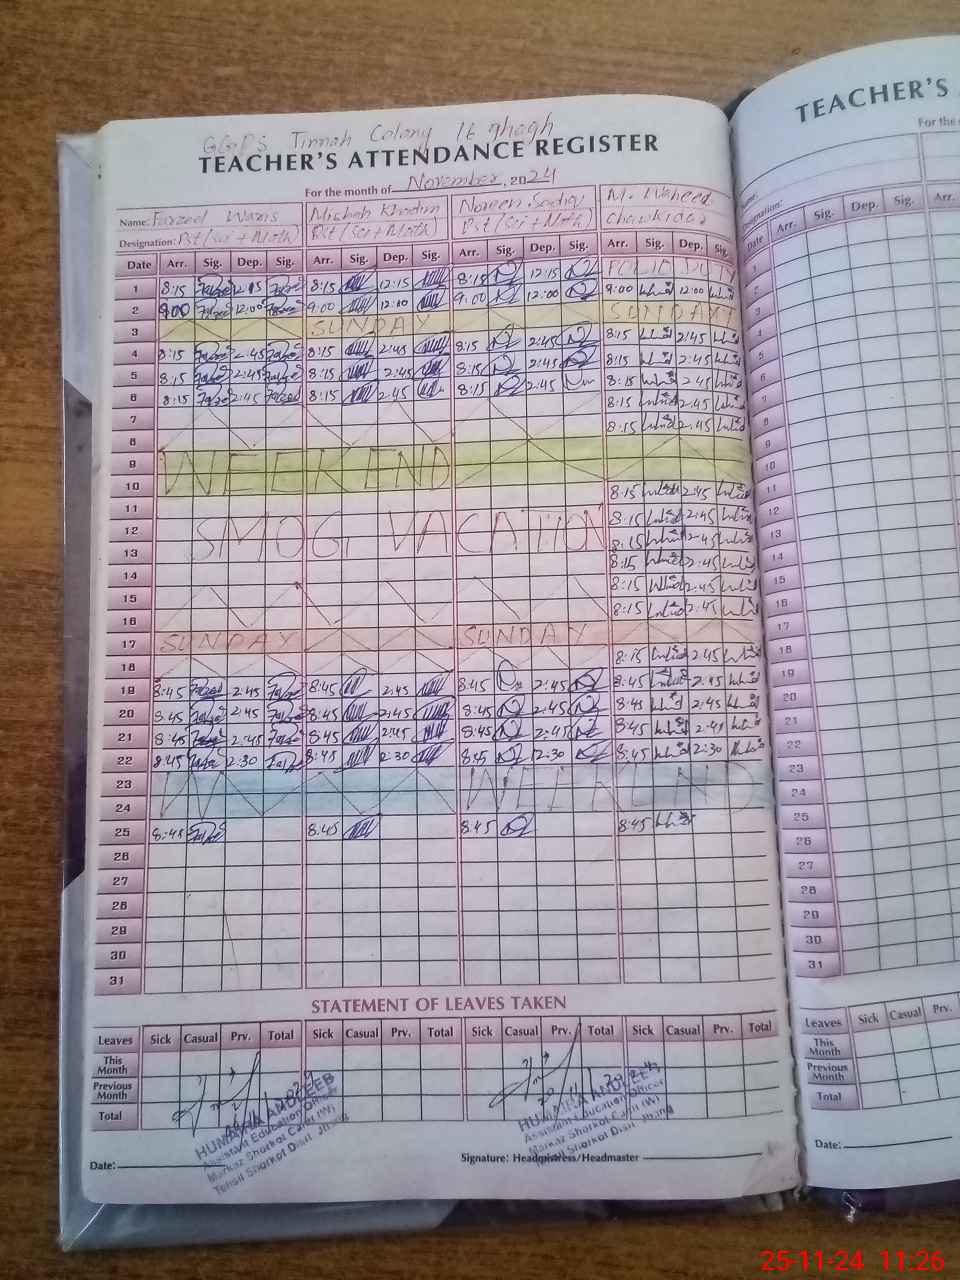 GGPS Jinnah Colony 16 ghagh
TEACHER'S ATTENDANCE REGISTER
For the month of November, 2024
Name: Farzeel Waris Misbah Khadim Noreen Sadiq M. Waheed
Designation: Pst (Sci + Math) Pst (Sci + Math) Pst (Sci + Math) Chowkidar
Date Arr. Sig. Dep. Sig. Arr. Sig. Dep. Sig. Arr. Sig. Dep. Sig. Arr. Sig. Dep. Sig.
1 8:15 12:15 8:15 12:15 8:15 12:15 POLIO DUTY
2 9:00 12:00 9:00 12:00 9:00 12:00 9:00 12:00
3 SUNDAY SUNDAY
4 8:15 2:45 8:15 2:45 8:15 2:45 8:15 2:45
5 8:15 2:45 8:15 2:45 8:15 2:45 8:15 2:45
6 8:15 2:45 8:15 2:45 8:15 2:45 8:15 2:45
7 8:15 2:45
8 8:15 2:45
9 WEEKEND
10
11 8:15 2:45
12 SMOG VACATION 8:15 2:45
13 8:15 2:45
14 8:15 2:45
15 8:15 2:45
16 8:15 2:45
17 SUNDAY SUNDAY
18 8:15 2:45
19 8:45 2:45 8:45 2:45 8:45 2:45 8:45 2:45
20 8:45 2:45 8:45 2:45 8:45 2:45 8:45 2:45
21 8:45 2:45 8:45 2:45 8:45 2:45 8:45 2:45
22 8:45 2:30 8:45 2:30 8:45 12:30 8:45 12:30
23 W WEEKEND
24
25 8:45 8:45 8:45 8:45
26
27
28
29
30
31
STATEMENT OF LEAVES TAKEN
Leaves Sick Casual Prv. Total Sick Casual Prv. Total Sick Casual Prv. Total Sick Casual Prv. Total
This Month
Previous Month
Total
HUMAIRA ANDLEEB
Assistant Education Officer
Markaz Shorkot Cantt (W)
Tehsil Shorkot Distt. Jhang
HUMAIRA ANDLEEB
Assistant Education Officer
Markaz Shorkot Cantt (W)
Tehsil Shorkot Distt. Jhang
Date: Signature: Headmistress/Headmaster
TEACHER'S
For the
Designation:
Date Arr. Sig. Dep. Sig. Arr.
1
2
3
4
5
6
7
8
9
10
11
12
13
14
15
16
17
18
19
20
21
22
23
24
25
26
27
28
29
30
31
Leaves Sick Casual Prv.
This Month
Previous Month
Total
Date:
25-11-24 11:26